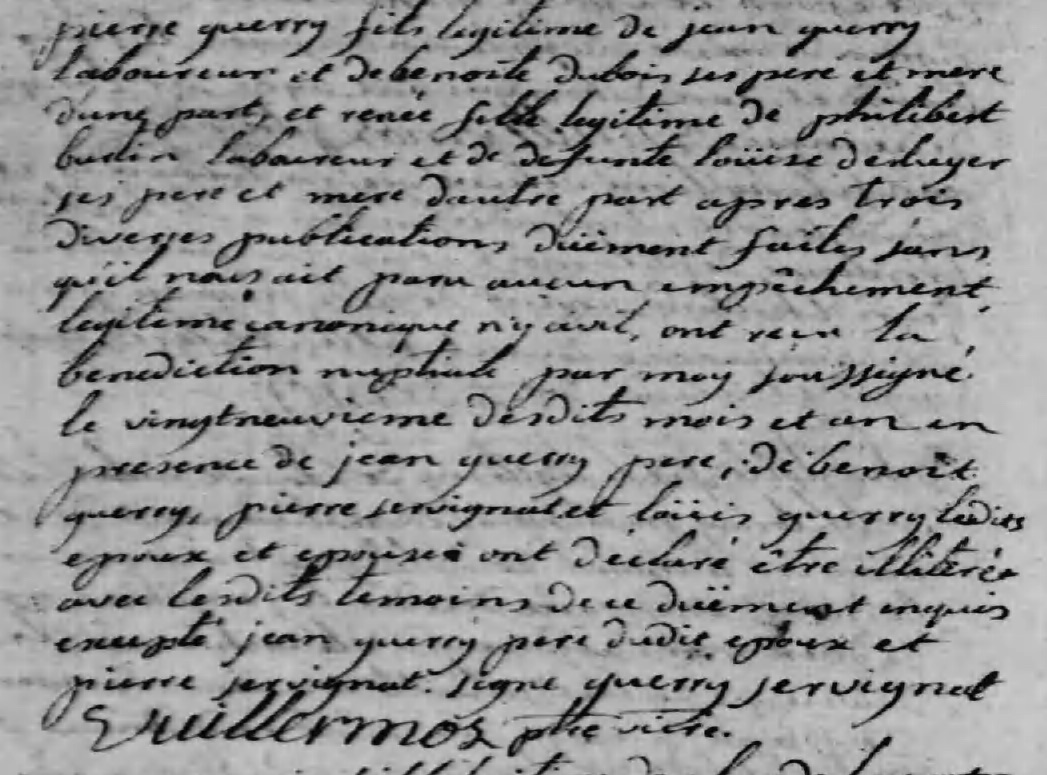 pierre querry fils legitime de jean querry
laboureur et de benoite dubois ses pere et mere
dune part, et renée fille legitime de philibert
budin laboureur et de defunte loüise
ses pere et mere dautre part apres trois
diverses publications düëment faites sans
quil nous ait paru aucun empêchement
legitime canonique ny civil, ont recu la
benediction nuptiale par moy soussigné
le vingtneuvieme desdits mois et an en
presence de jean querry pere, de benoit
querry, pierre servignat et loüis querry lesdits
epoux et epouse ont déclaré être illiteré
avec lesdits temoins de ce düëment enquis
excepté jean querry pere dudit epoux et
pierre servignat. signe querry servignat
Vuillermoz ptre vicre.